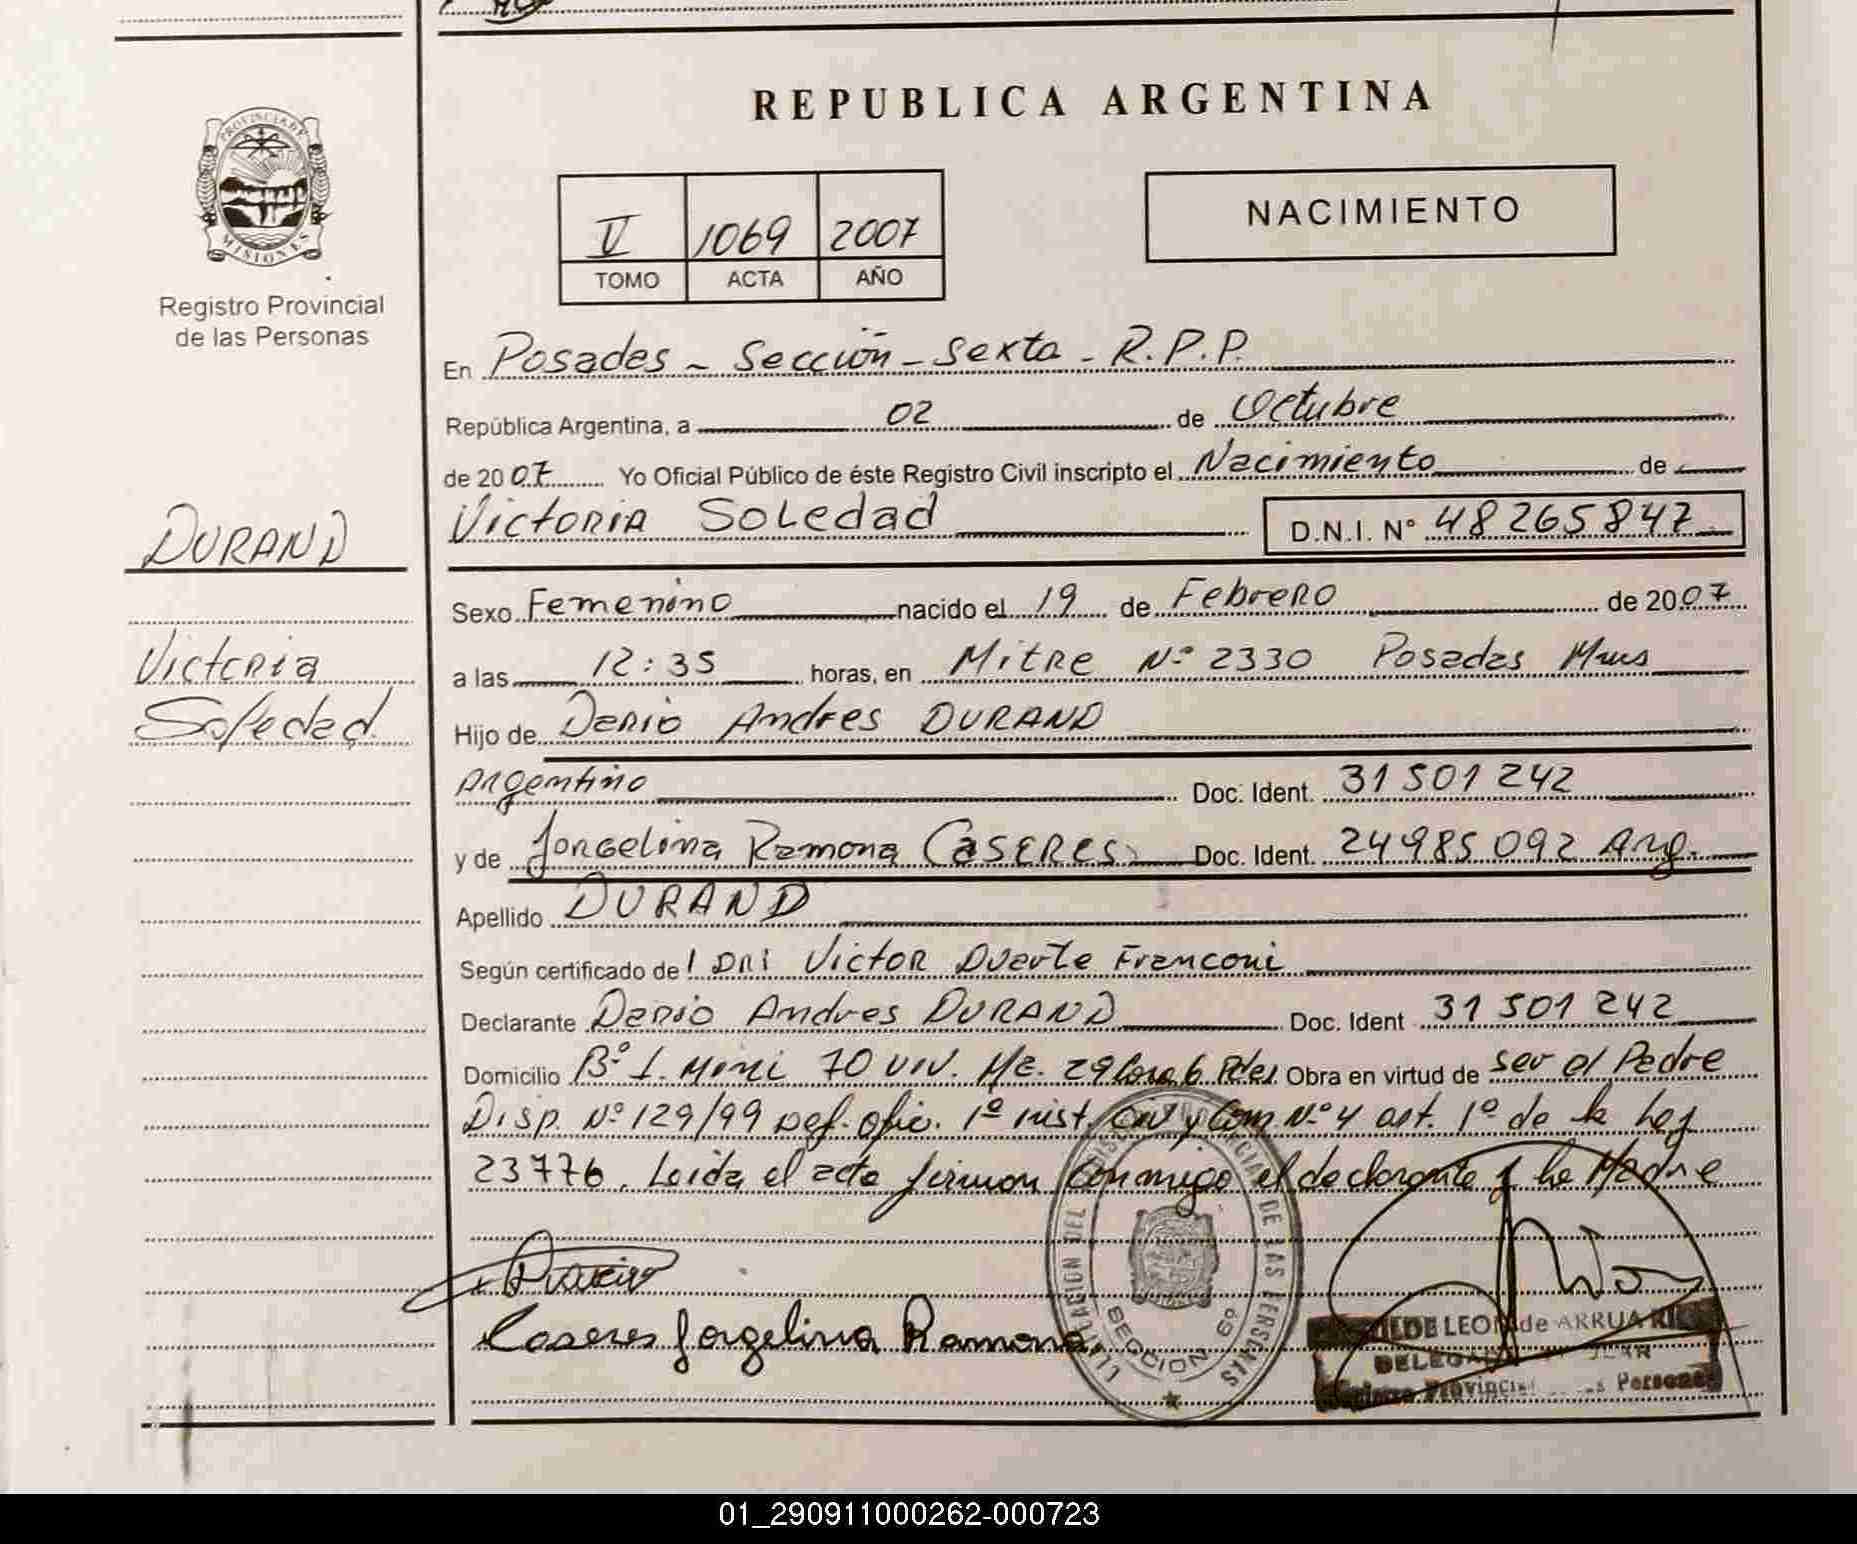 PROVINCIA DE
MISIONES
Registro Provincial
de las Personas
DURAND
Victoria
Soledad
REPUBLICA ARGENTINA
V 1069 2007
TOMO ACTA AÑO
NACIMIENTO
En Posadas - Sección - Sexta - R.P.P.
República Argentina, a 02 de Octubre
de 2007 Yo Oficial Público de éste Registro Civil inscripto el Nacimiento de
Victoria Soledad D.N.I. N° 48265847
Sexo Femenino nacido el 19 de Febrero de 2007
a las 12:35 horas, en Mitre Nº 2330 Posadas Mnes
Hijo de Dario Andres DURAND
Argentino Doc. Ident. 31501242
y de Jorgelina Ramona CASERES Doc. Ident. 24985092 Arg.
Apellido DURAND
Según certificado de Victor Duarte Franconi
Declarante Dario Andres DURAND Doc. Ident 31501242
Domicilio Bº 70 viv. Mz. 29 Casa 6 Pdas Obra en virtud de ser el Padre
Disp. Nº 129/99 Def. ofic. 1º inst. Civ y Com. Nº 4 art. 1º de la ley
23776. Leida el acta firman conmigo el declarante y la Madre
Caseres Jorgelina Ramona
DE LAS PERSONAS
SECCION 6º
DE LEON de ARRUA
Personas
01_290911000262-000723